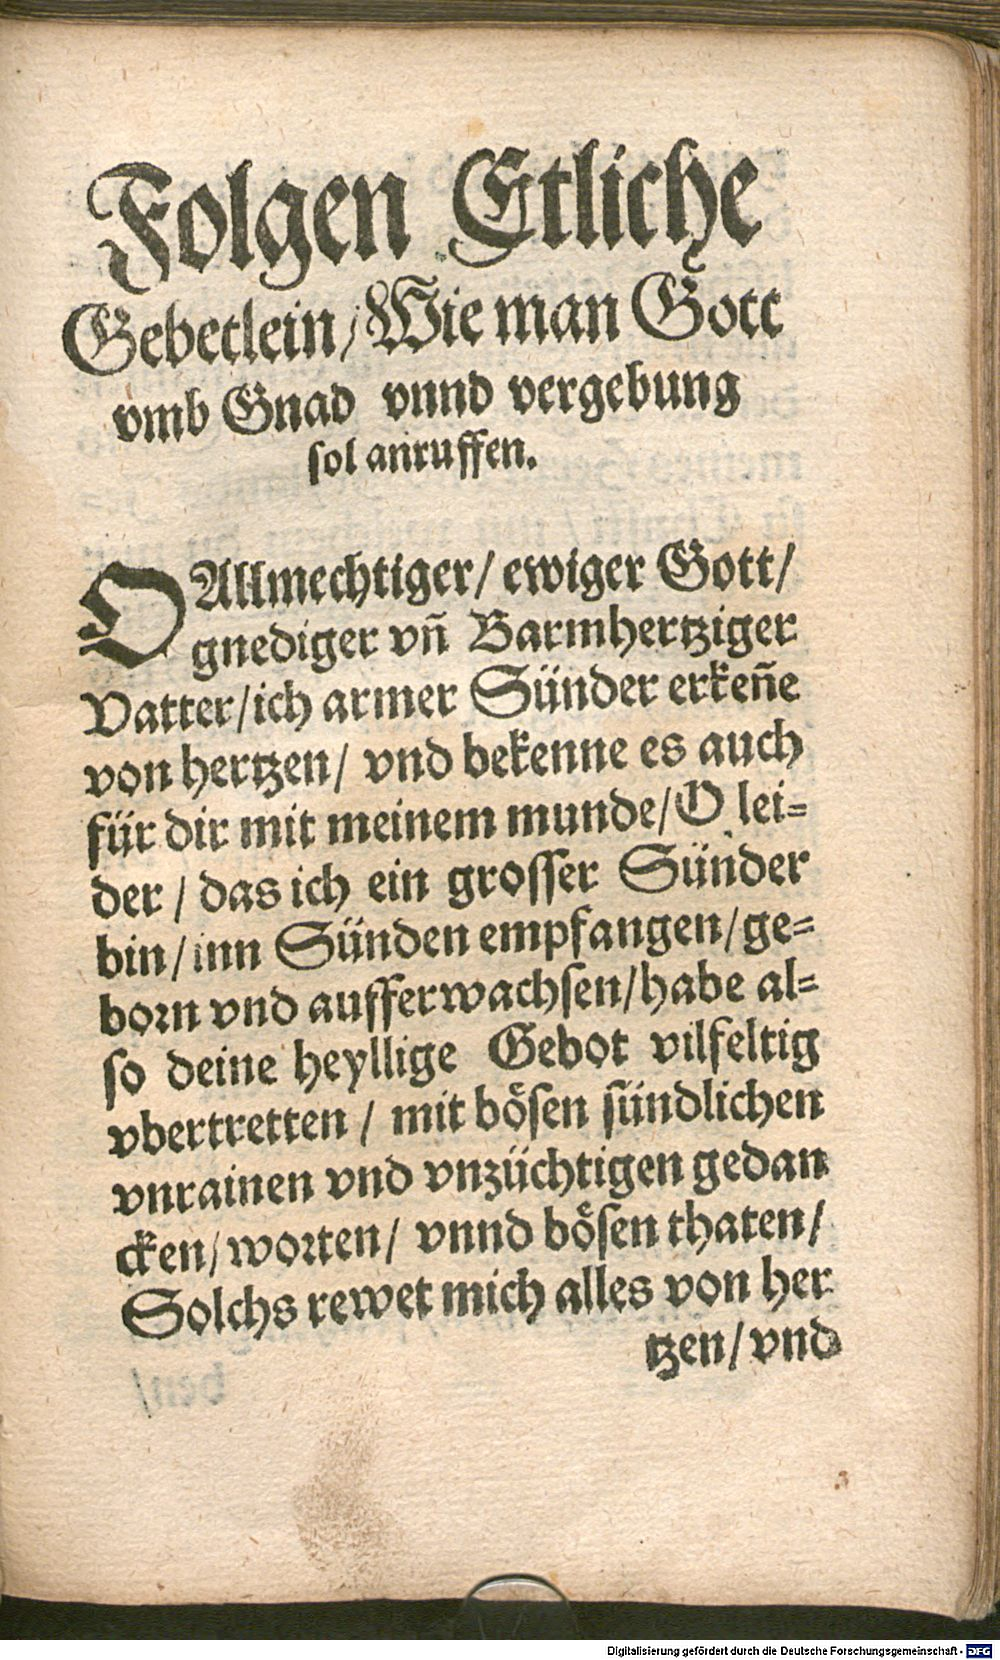 Folgen Etliche
Gebetlein/ Wie man Gott
vmb Gnad vnnd vergebung
sol anruffen.
O Allmechtiger/ ewiger Gott/
gnediger vñ Barmhertziger
Vatter/ ich armer Sünder erkeñe
von hertzen/ vnd bekenne es auch
für dir mit meinem munde/ O lei=
der/ das ich ein grosser Sünder
bin/ inn Sünden empfangen/ ge=
born vnd aufferwachsen/ habe al=
so deine heyllige Gebot vilfeltig
vbertretten/ mit bösen sündlichen
vnrainen vnd vnzüchtigen gedan
cken/ worten/ vnnd bösen thaten/
Solchs rewet mich alles von her
tzen/ vnd
Digitalisierung gefördert durch die Deutsche Forschungsgemeinschaft - DFG